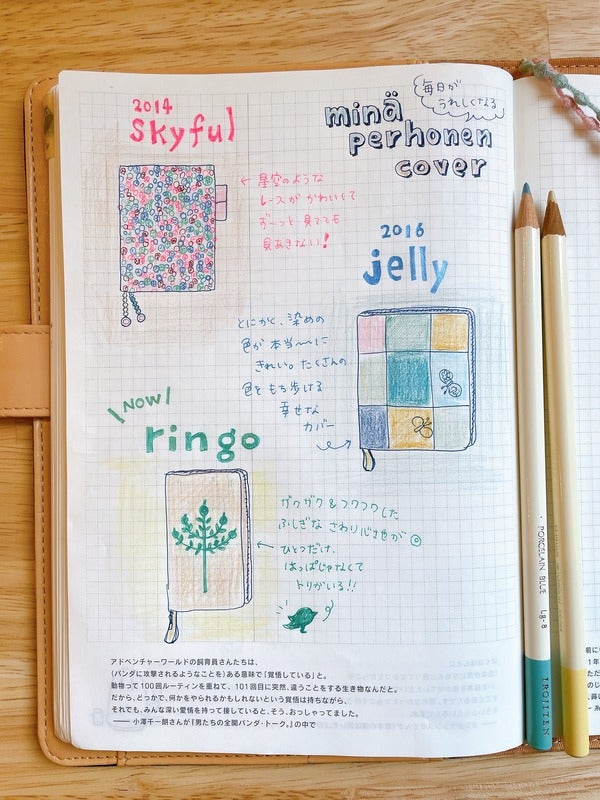 2014
skyful
星空のような
レースが かわいくて
ずーっと 見てても
見あきない!
毎日が
うれしくなる
minä
perhonen
cover
2016
jelly
とにかく、染めの
色が本当〜に
きれい。たくさんの
色を もち歩ける
幸せな
カバー
NOW
ringo
ザクザク & フワフワした
ふしぎな さわり心地が◎
ひとつだけ、
はっぱじゃなくて
トリがいる!!
アドベンチャーワールドの飼育員さんたちは、
(パンダに攻撃されるようなことを)ある意味で「覚悟している」と。
動物って100回ルーティンを重ねて、101回目に突然、違うことをする生き物なんだと。
だから、どっかで、何かをやられるかもしれないという覚悟は持ちながら、
それでも、みんな深い愛情を持って接していると、そう、おっしゃってました。
—— 小澤千一朗さんが『男たちの全開パンダ・トーク。』の中で
PORCELAIN BLUE Lg-8
TROJITEN